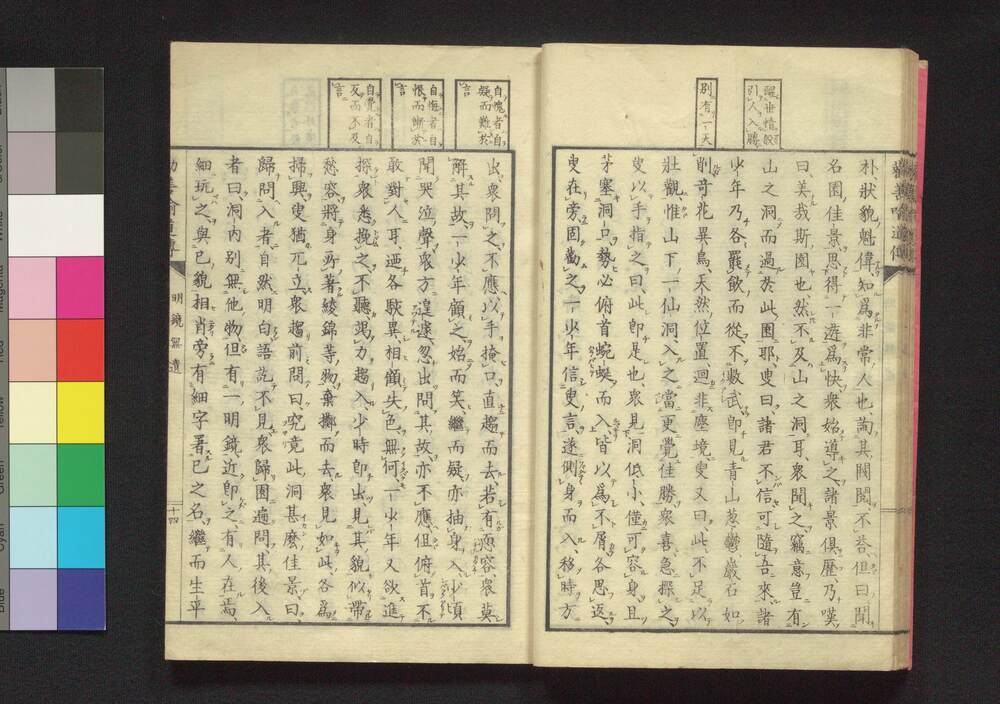 醒世情般
引人入勝
別有一天
朴狀貌魁偉知爲非常人也詢其閥閱不荅但曰聞
名園佳景思得一遊爲快衆始導之諸景俱歷乃嘆
曰美哉斯園也然不及山之洞耳衆聞之竊意豈有
山之洞而過於此園耶叟曰諸君不信可隨吾來諸
少年乃各罷飲而從不數武卽見青山葱鬱巖石如
削奇花異鳥天然位置迥非塵境叟又曰此不足以
壯觀惟山下一仙洞入之當更覺佳勝衆喜急探之
叟以手指之曰此卽是也衆見洞低小僅可容身且
茅塞洞口勢必俯首蜿蜒而入皆以爲不屑各思返
叟在旁固勸之一少年信叟言遂側身而入移時方
自愧者自
疑而難於
言
自悔者自
恨而慚於
言
自覺者自
反而不及
言
出衆問之不應以手掩口直趨而去若有惡容衆莫
解其故一少年顧之始而笑繼而疑亦抽身入少頃
聞哭泣聲衆方遑遽忽出問其故亦不應但俯首不
敢對人耳迺各駭異相顧失色無何一少年又欲進
探衆悉挽之不聽竭力趨入少時卽出見其貌似帶
愁容將身所著綾錦等物棄擲而去衆見如此各爲
掃興叟猶兀立衆趨前問曰究竟此洞甚麽佳景曰
歸問入者自然明白語訖不見衆歸園遍問其後入
者曰洞內別無他物但有一明鏡近卽之有人在焉
細玩之與己貌相肖旁有細字署己之名繼而生平
明鏡無遺
十四